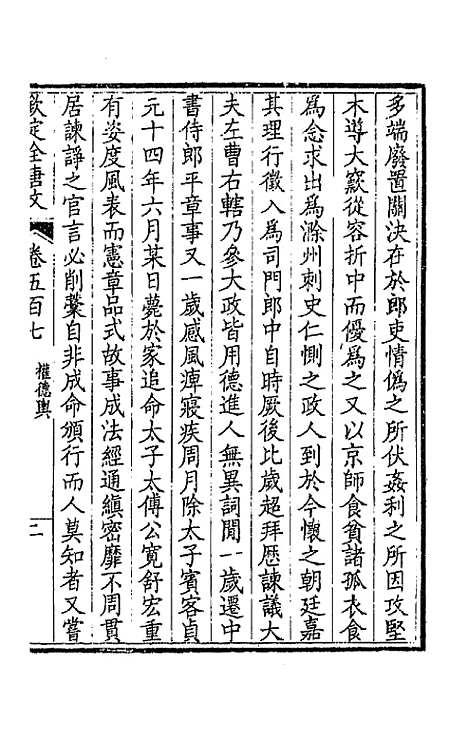 多端廢置關決在於郎吏情僞之所伏姦利之所因攻堅
木導大窾從容折中而優爲之又以京師食貧諸孤衣食
爲念求出爲滁州刺史仁惻之政人到於今懷之朝廷嘉
其理行徵入爲司門郎中自時厥後比歲超拜歷諫議大
夫左曹右轄乃參大政皆用德進人無異詞閒一歲遷中
書侍郎平章事又一歲感風痺寢疾周月除太子賓客貞
元十四年六月某日薨於家追命太子太傅公寬舒宏重
有姿度風表而憲章品式故事成法經通縝密靡不周貫
居諫諍之官言必削藁自非成命頒行而人莫知者又嘗
欽定全唐文
卷五百七
權德輿
二